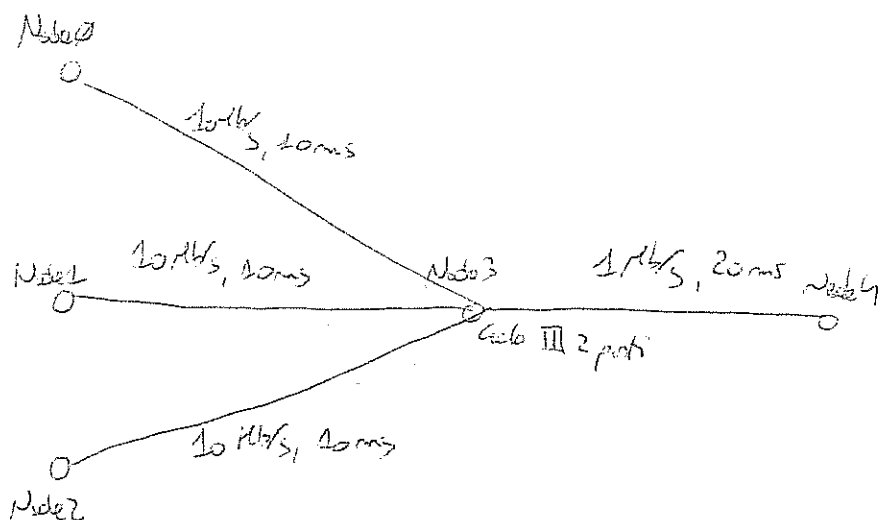 Node0
10Mb/s, 10ms
Node1
10Mb/s, 10ms
Nodo3
1Mb/s, 20ms
Node4
III 2 posti
10Mb/s, 10ms
Node2